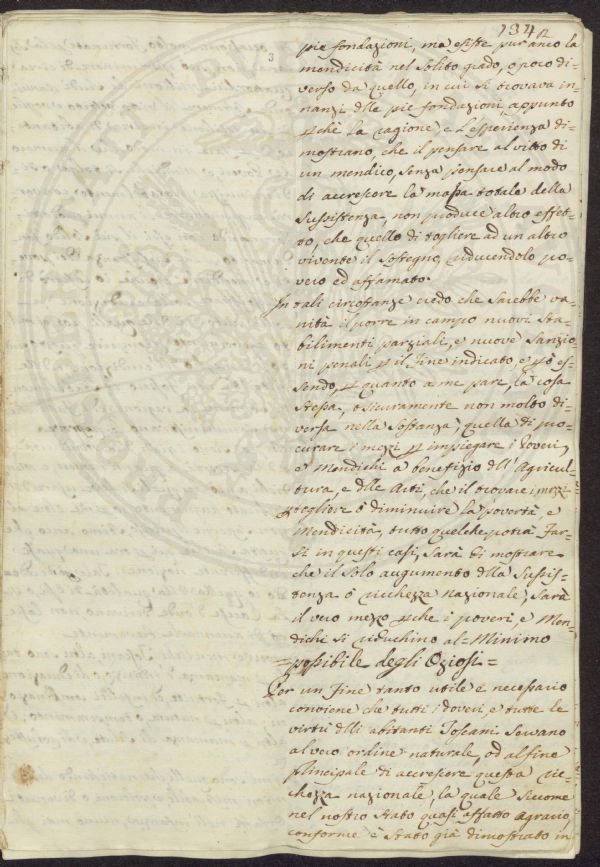 134
3
pie fondazioni, ma esiste pur anco la
mendicità nel solito grado, o poco di-
verso da quello, in cui si trovava in-
nanzi dlle pie fondazioni, appunto
pchè la ragione, e l'esperienza di-
mostrano, che il pensare al vitto di
un mendico, senza pensare al modo
di accrescere la massa totale della
sussistenza, non produce altro effet-
to, che quello di togliere ad un altro
vivente il sostegno, riducendolo po-
vero ed affamato.
In tali circostanze credo che sarebbe va-
nità il porre in campo nuovi sta-
bilimenti parziali, e nuove sanzio-
ni penali p il fine indicato, e pò es-
sendo, p quanto a me pare, la cosa
stessa, o sicuramente non molto di-
versa nella sostanza, quella di pro-
curare i mezzi p impiegare i Poveri,
e Mendichi a benefizio dll'Agricul-
tura, e dlle Arti, che il trovare i mezzi
p togliere ò diminuire la povertà, e
Mendicità, tutto quel che potrà far-
si in questi casi, sarà di mostrare
che il solo augumento dlla sussis-
tenza ò ricchezza nazionale, sarà
il vero mezzo pchè i poveri, e Men-
dichi si riduchino al = Minimo
= possibile degli Oziosi =
Per un fine tanto utile e necessario
conviene che tutti i doveri, e tutte le
virtù dlli abitanti Toscani servano
al vero ordine naturale, ed al fine
principale di accrescere questa ric-
chezza nazionale, la quale siccome
nel nostro stato quasi affatto Agrario,
conforme è stato già dimostrato in